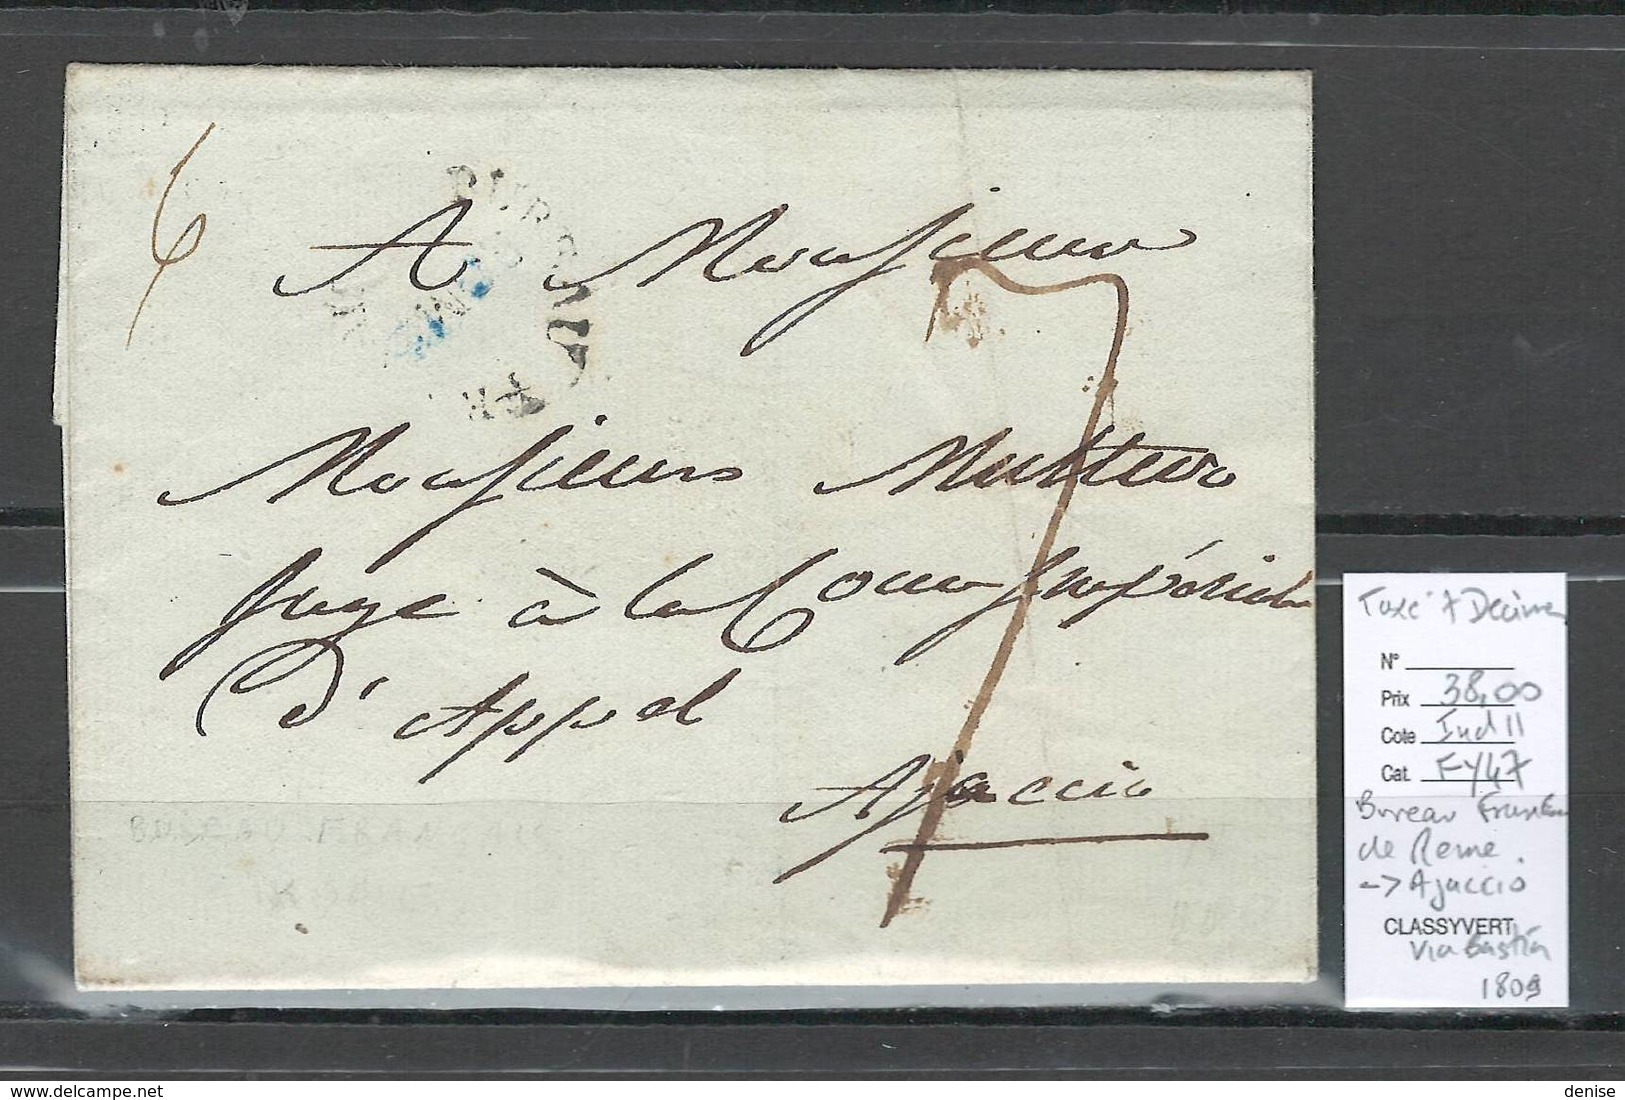 6
BUREAU
FR
ROME
7
A Monsieur
Monsieur
Juge à la Cour Impériale
d'Appel
Ajaccio
BUREAU FRANCAIS
Taxe 7 Decimes
N°
Prix 38,00
Cote Ind 11
Cat. FY47
Bureau Francais
de Rome
-> Ajaccio
CLASSYVERT
Via Bastia
1809
denise